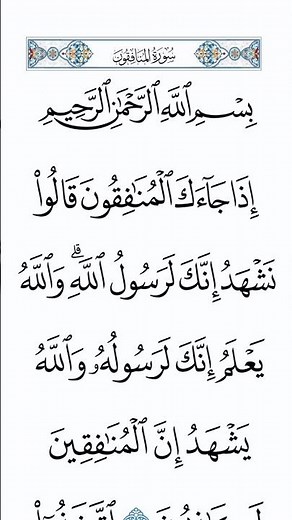 سورة المنافقون
بِسْمِ ٱللَّهِ ٱلرَّحْمَٰنِ ٱلرَّحِيمِ
إِذَا جَآءَكَ ٱلْمُنَٰفِقُونَ قَالُوا۟
نَشْهَدُ إِنَّكَ لَرَسُولُ ٱللَّهِ ۗ وَٱللَّهُ
يَعْلَمُ إِنَّكَ لَرَسُولُهُۥ وَٱللَّهُ
يَشْهَدُ إِنَّ ٱلْمُنَٰفِقِينَ